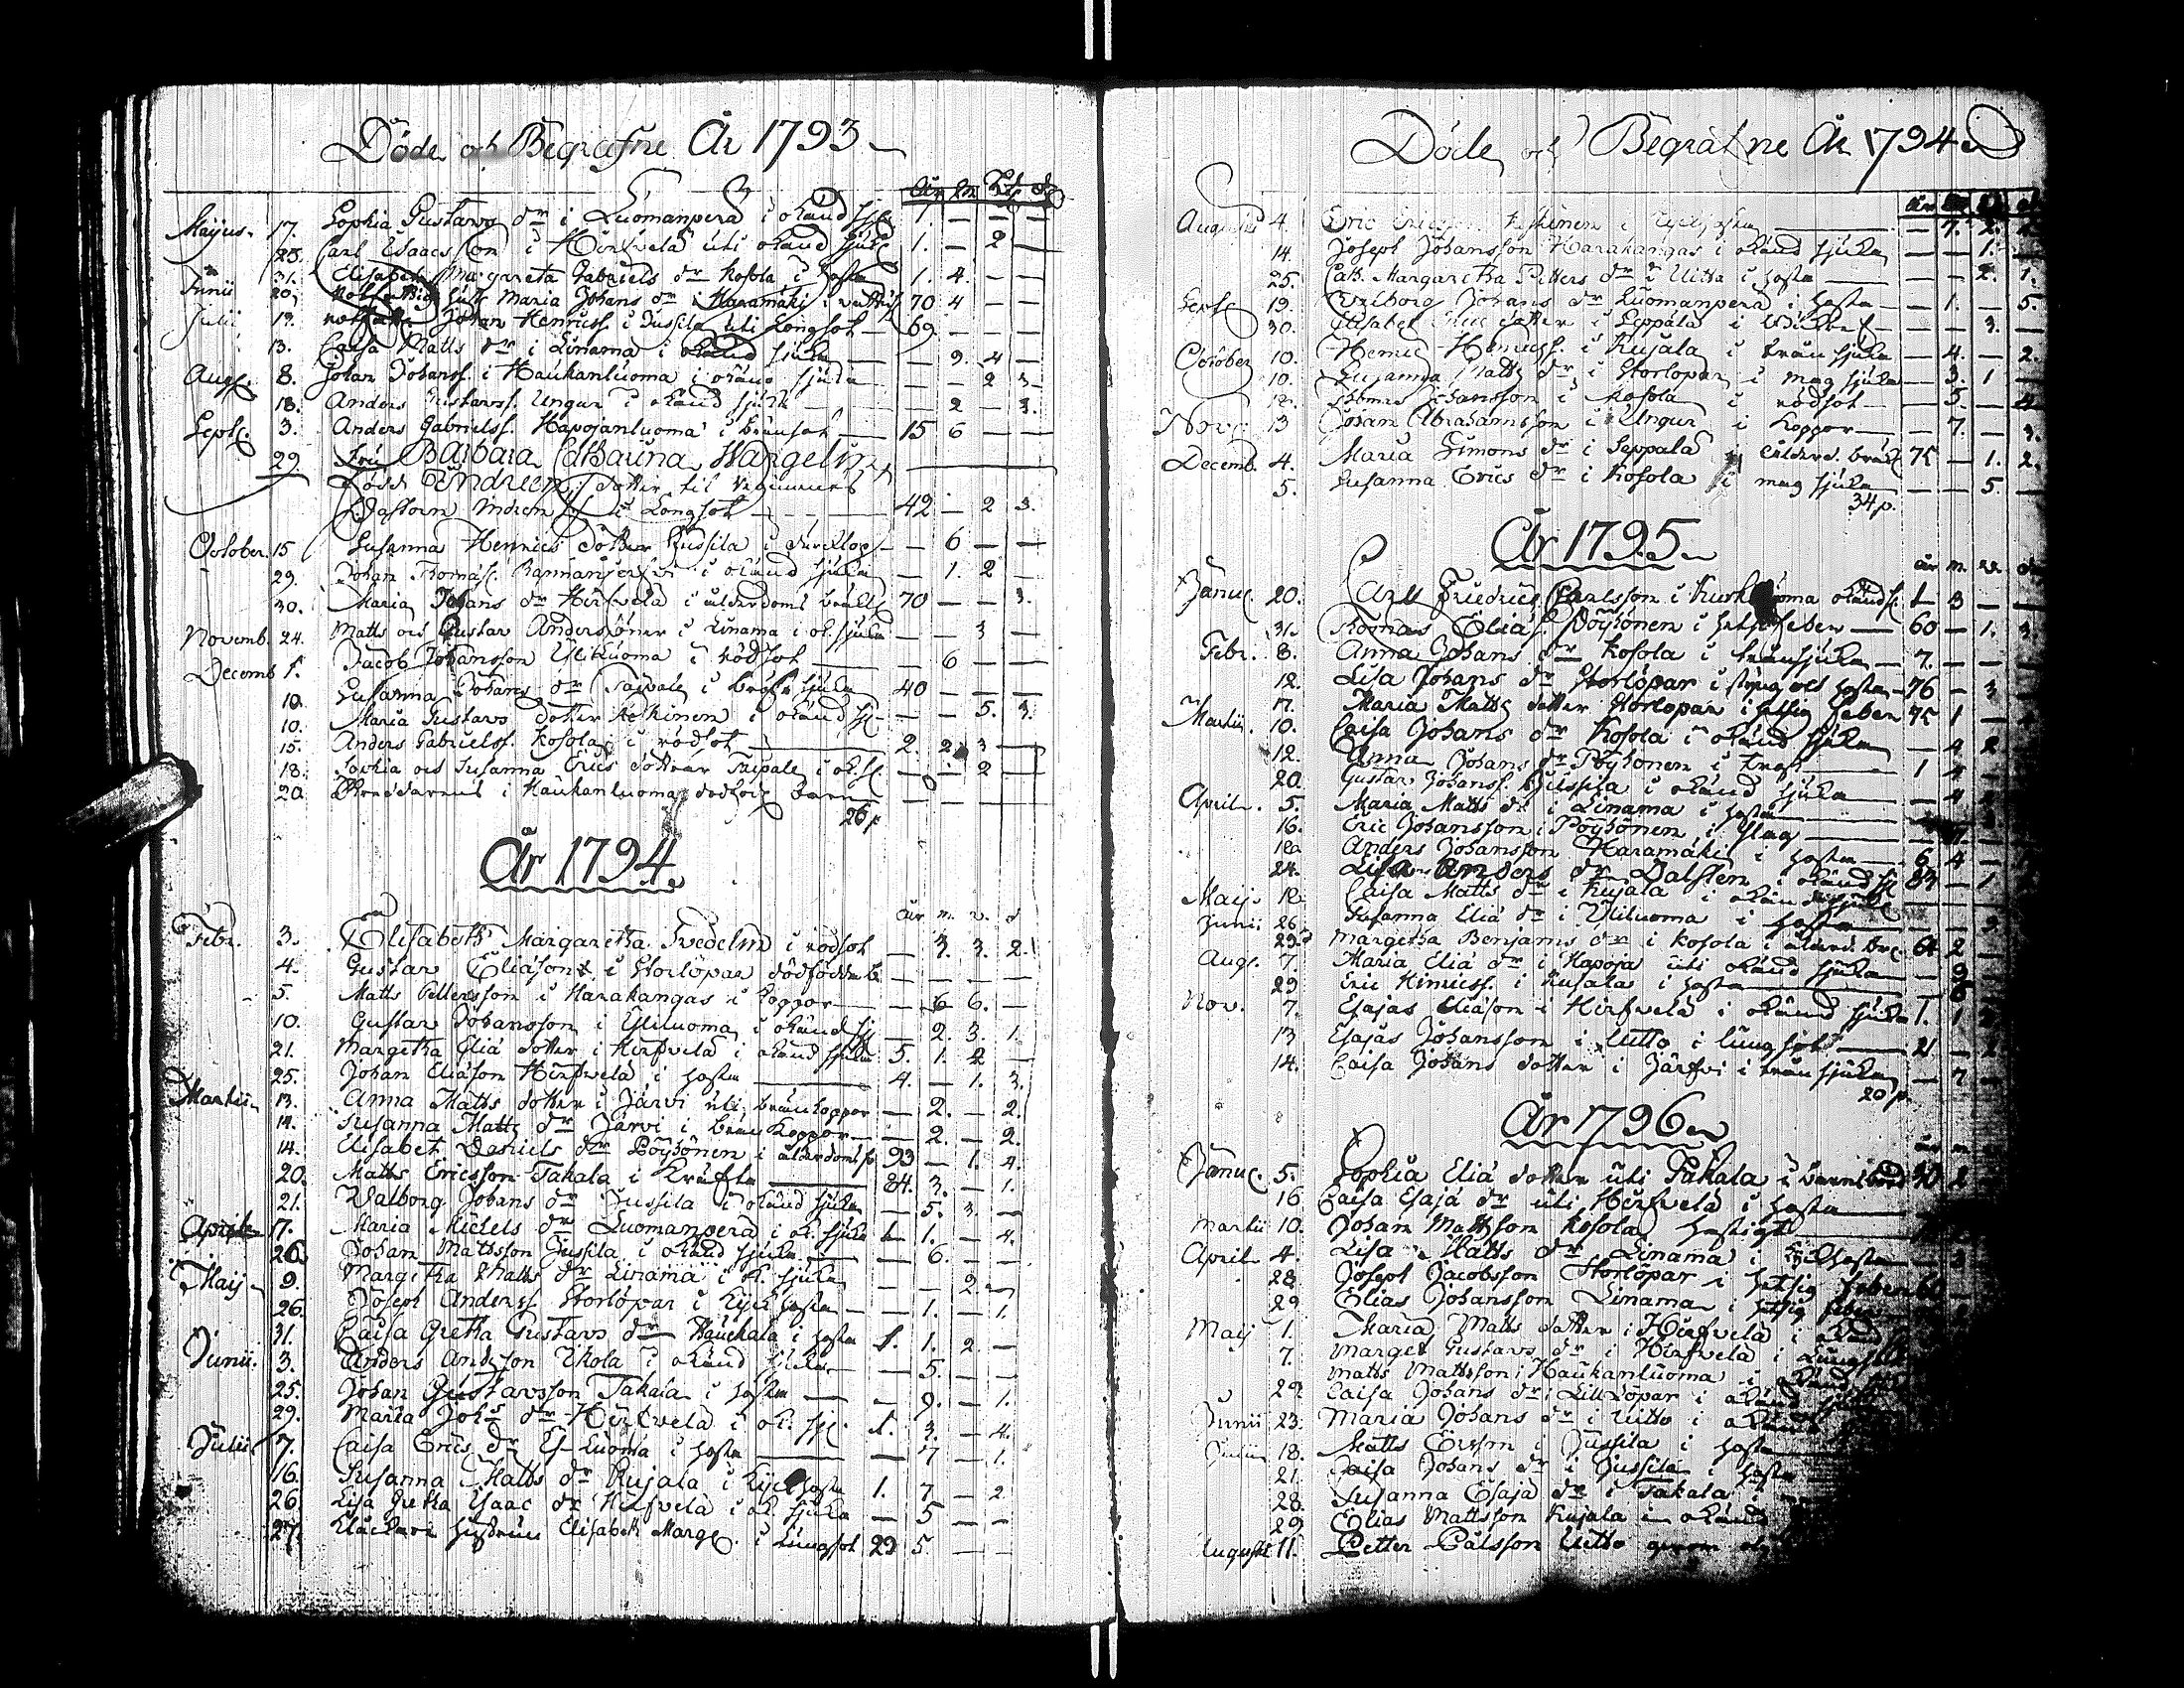 Döde och Begrafne År 1793
År m. v. d.
Majus 17. Sophia Gustavs dr i Luomanperä i okänd sj. 1 — — —
23. Carl Isaacsson i Hirfvelä uti okänd sjuk 1. — 2 —
31. Elisabeth Margareta Gabriels dr Kosola i hosta 1. 4. — —
Junii 20. hust. Maria Johans dr i Haramäki i 70 4 — —
Julii 17. Johan Henricss. i Jussila uti Longsot 69. — — —
13. Caisa Matts dr i Linama i okänd sjuka — 9. 4 —
Aug. 8. Johan Johanss. i Haukanluoma i okänd sjuka — — 2 3
18. Anders Gustavss. Ungur i okänd sjuk — 2 — 3.
Sept. 3. Anders Gabrielss. Hapojanluoma i bränsot 15 6 — —
29. Fru Barbara Catharina Wargelin
född Indren, dotter til
Pastorn Indren i Longsot 42 — 2 3.
October. 15 Susanna Henrics dotter Jussila i — 6 — —
29. Johan Thomas. i okänd sjuka — 1. 2 —
30. Maria Johans dr Hirfvelä i ålderdoms bräckl. 70 — — 3.
Novemb. 24. Matts och Gustav Anderssöner i Linama i ok. sjuka — — 3 —
Decemb 1. Jacob Johansson Ylikuoma i rödsot — 6 — —
10. Susanna Johans dr Taipale i bröst sjuka 40 — — —
10. Maria Gustavs dotter Keskinen i okänd sj. — — 5. 3.
15. Anders Gabrielss. Kosola i rödsot 2. 2 3 —
18. Sophia och Susanna Erics döttrar Taipale i ok. sj. — — 2 —
20 i Haukanluoma dödfödt barn — — — —
26 p.
År 1794.
år m. v. d
Febr. 3. Elisabeth Margaretha Svedelin i rödsot — 3. 3. 2.
4. Gustav Eliasson i Storlöpar dödfödder — — — —
5. Matts Pettersson i Harakangas i koppor — 6 6. —
10. Gustav Johansson i Yliluoma i okänd sj. — 2. 3. 1.
21. Margetha Eliä dotter i Hirfvelä i okänd sjuka 5. 1. 2 —
25. Johan Eliäson Hirfvelä i hosta 4. — 1. 3.
Martii 13. Anna Matts dotter i Järvi uti bränkoppor — 2. — 2.
14. Susanna Matts dr Järvi i brän koppor — 2. — 2.
14. Elisabet Daniels dr Pöyhönen i ålderdoms 93 — 1. 4.
20. Matts Ericsson Takala i Kräfta 84. 3. — 1.
21. Walborg Johans dr Jussila i okänd sjuka — 5. 3. —
April 17. Maria Michels dr Luomanperä i ok. sjuka 1 1. — 4.
26. Johan Mattsson Jussila i okänd sjuka — 6. — —
Maij 9. Margetha Matts dr Linama i ok. sjuka — — 2 —
26. Joseph Anderss. Storlöpar i Kyckhosta — 1. — 1.
31. Caisa Gretha Gustavs dr Haukala i hosta 1. 1. 2. —
Junii. 3. Anders Andsson Ikola i okänd sjuka — 5. — —
25. Johan Gustavsson Takala i hosta — 9. — 1.
29. Maria Johs dr Hirfvelä i ok. sj. 1. 3. — 4.
Julii 7. Caisa Erics dr Luoma i hosta — 7 — 1.
16. Susanna Matts dr Kujala i Kyckhosta 1. 7 — 2.
26. Lisa Gretha Isaac dr Hirfvelä i ok. sjuka — 5 — —
27. Elisabeth Marg. i Lungsot 29 5. — —
Döde och Begrafne År 1794
Augusti 4. Eric Ericsson Keskinen i Kyckhosta — 7. 2.
14. Joseph Johansson Harakangas i okänd sjuka — — 1.
25. Cath. Margaretha Petters dr i Uitto i hosta — — 2. 1.
Sept. 19. Walborg Johans dr Luomanperä i hosta — 1. — 5.
30. Elisabet Erics dotter i Seppälä i — — 3. —
October 10. Henric Henricss. i Kujala i brän sjuka — 4. — 2.
10. Susanna Matts dr i Storlöpar i mag sjuka — 3. 1 —
12. Thomas Johansson i Kosola i rödsot — 5. — 4
Nov. 13 Johan Abrahamsson i Ungur i Koppor — 7. — 3.
Decemb. 4. Maria Simons dr i Seppälä i ålderd. bräckl. 75 — 1. 2.
5. Susanna Erics dr i Kosola i mag sjuka — — 5. —
34 p.
År 1795
år m. v. d
Januc. 20. Carl Friedric Carlsson i okänd s. 1 3 — —
31. Thomas Eliäs. Pöyhönen i hetsefeber 60 — 1. 3.
Febr. 8. Anna Johans dr Kosola i bränsjuka 7. — — —
12. Lisa Johans dr Storlöpar i styng och hosta 76 — 3
17. Maria Matts dotter Storlöpar i hetsig feber 75 1 —
Martii. 10. Caisa Johans dr Kosola i okänd sjuka — 4 2
12. Anna Johans dr Pöyhönen i 1 4 —
20. Gustav Johanss. Jussila i okänd sjuka — 4
April. 5. Maria Matts dr i Linama i hosta
16. Eric Johansson Pöyhönen i slag
Anders Johansson Haramäki i hosta 6 4 —
24. Lisa Anders dr Dalsten i okänd sj. 83 — 1
Maij. 12. Caisa Matts dr i Kujala i okänd sjuka
Junii 26. Susanna Eliä dr i Yliluoma i hosta
29. Margetha Benjams dr i Kosola i ålderd. 64 2 —
Aug. 7. Maria Eliä dr i Hapoja uti okänd sjuka — 9
29 Eric Henricss. i Kujala i hosta — 6
Nov. 7. Esajas Eliäson i Hirfvelä i okänd sjuka 1. 1
13 Esajas Johansson i Uitto i lungsot 21. — 2
14. Caisa Johans dotter i Järfvi i brän sjuka — 7 —
20 p.
År 1796
år m
Januc. 5. Sophia Eliä dotter uti Takala i barnsbörd 40 2
16 Caisa Esajä dr uti Hirfvelä i hosta
Martii 10. Johan Mattsson Kosola hastigt
April 4. Lisa Matts dr Linama i hosta
28 Joseph Jacobsson Storlöpar i hetsig feber
29 Elias Johansson Linama i hetsig feber
Maij 1. Maria Matts dotter i Hirfvelä i okänd
7. Marget Gustavs dr i Hirfvelä i Lungsot
Matts Mattsson i Haukanluoma i okänd
29. Caisa Johans dr i Lillöpar i okänd sjuka
Junii 23. Maria Johans dr i Uitto i okänd
Julii 18. Matts Ersson i Jussila i hosta
21. Caisa Johans dr i Jussila i hosta
28. Susanna Esajä dr i Takala
29. Elias Mattsson Kujala i okänd
Augusti 11. Petter Pålsson Uitto genom